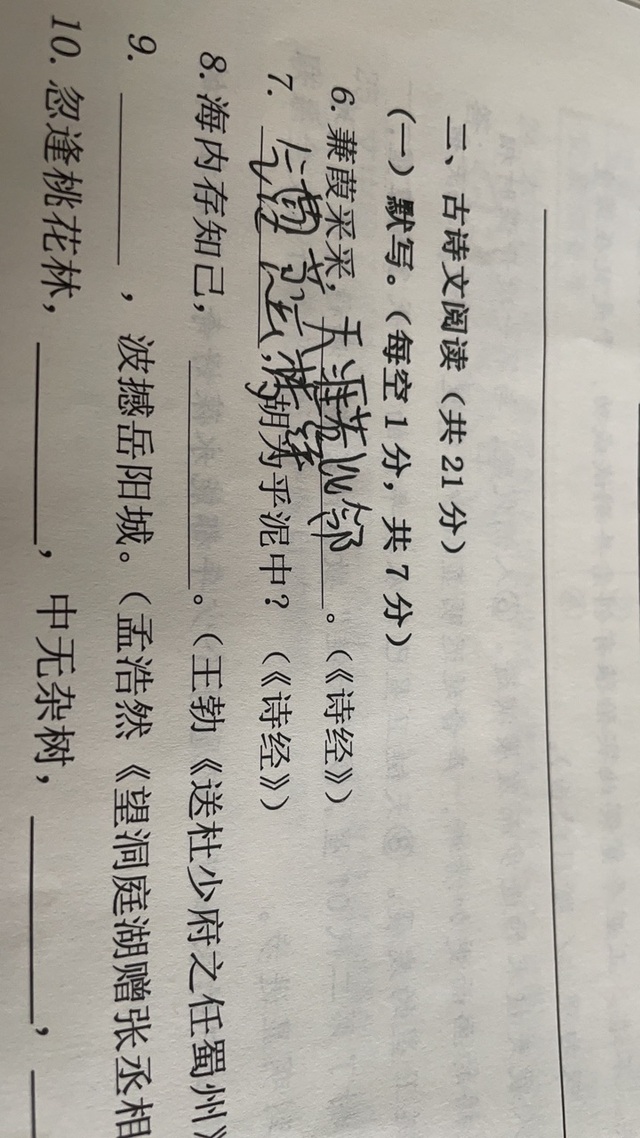 二、古诗文阅读（共 21 分）
（一）默写。（每空 1 分，共 7 分）
6. 蒹葭采采，天涯若比邻。（《诗经》）
7. 气蒸云梦泽，胡为乎泥中？（《诗经》）
8. 海内存知己，________。（王勃《送杜少府之任蜀州》
9. ________，波撼岳阳城。（孟浩然《望洞庭湖赠张丞相
10. 忽逢桃花林，________，中无杂树，________，